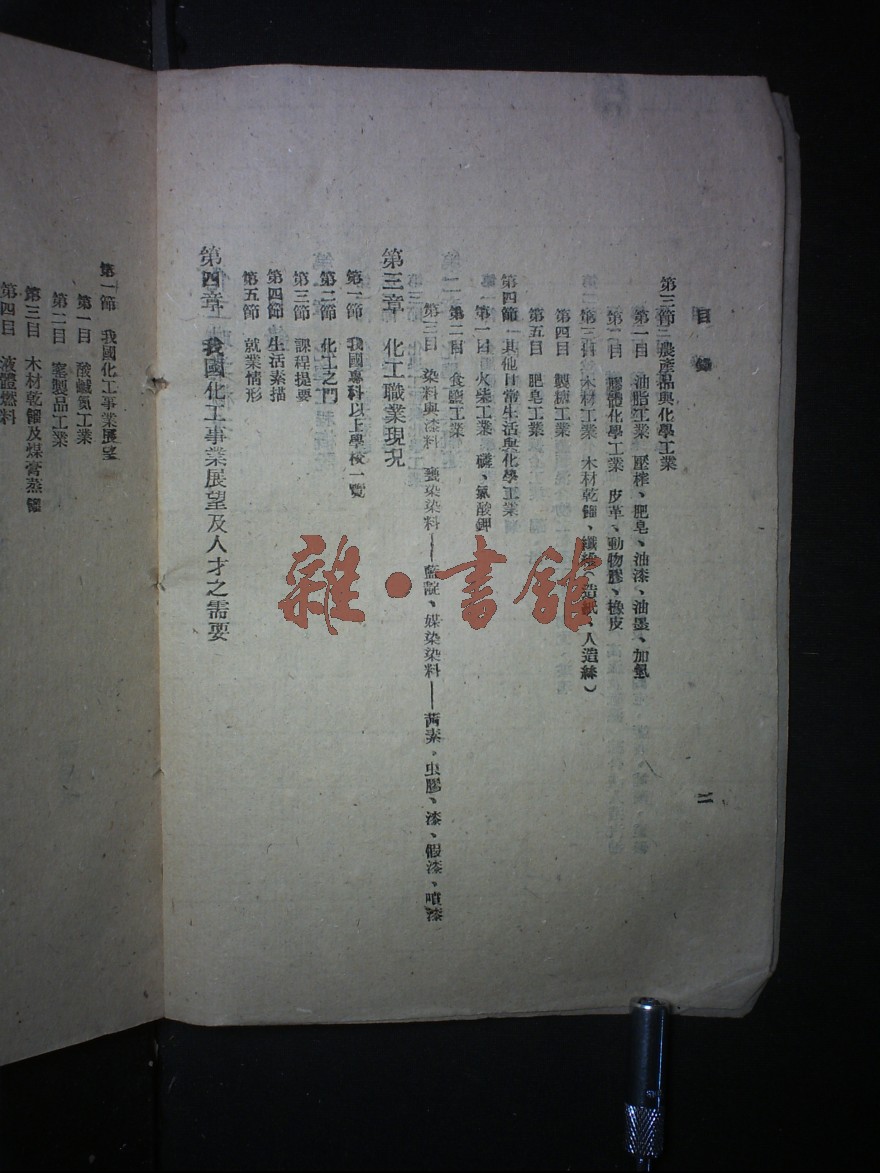 目錄
二
第三節 農產品與化學工業
第一目 油脂工業 壓榨、肥皂、油漆、油墨、加氫
第二目 膠體化學工業 皮革、動物膠、橡皮
第三目 木材工業 木材乾餾、纖維(造紙、人造絲)
第四目 製糖工業
第五目 肥皂工業
第四節 其他日常生活與化學工業
第一目 火柴工業 磷、氯酸鉀
第二目 食鹽工業
第三目 染料與漆料 甕染染料——藍靛、媒染染料——茜素，虫膠、漆、假漆、噴漆
第三章 化工職業現況
第一節 我國專科以上學校一覽
第二節 化工之門
第三節 課程提要
第四節 生活素描
第五節 就業情形
第四章 我國化工事業展望及人才之需要
第一節 我國化工事業展望
第一目 酸鹼氮工業
第二目 窰製品工業
第三目 木材乾餾及煤膏蒸餾
第四目 液體燃料
雜·書館